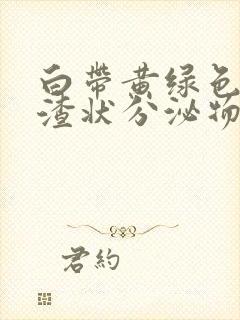 白带黄绿色
渣状分泌物
君约